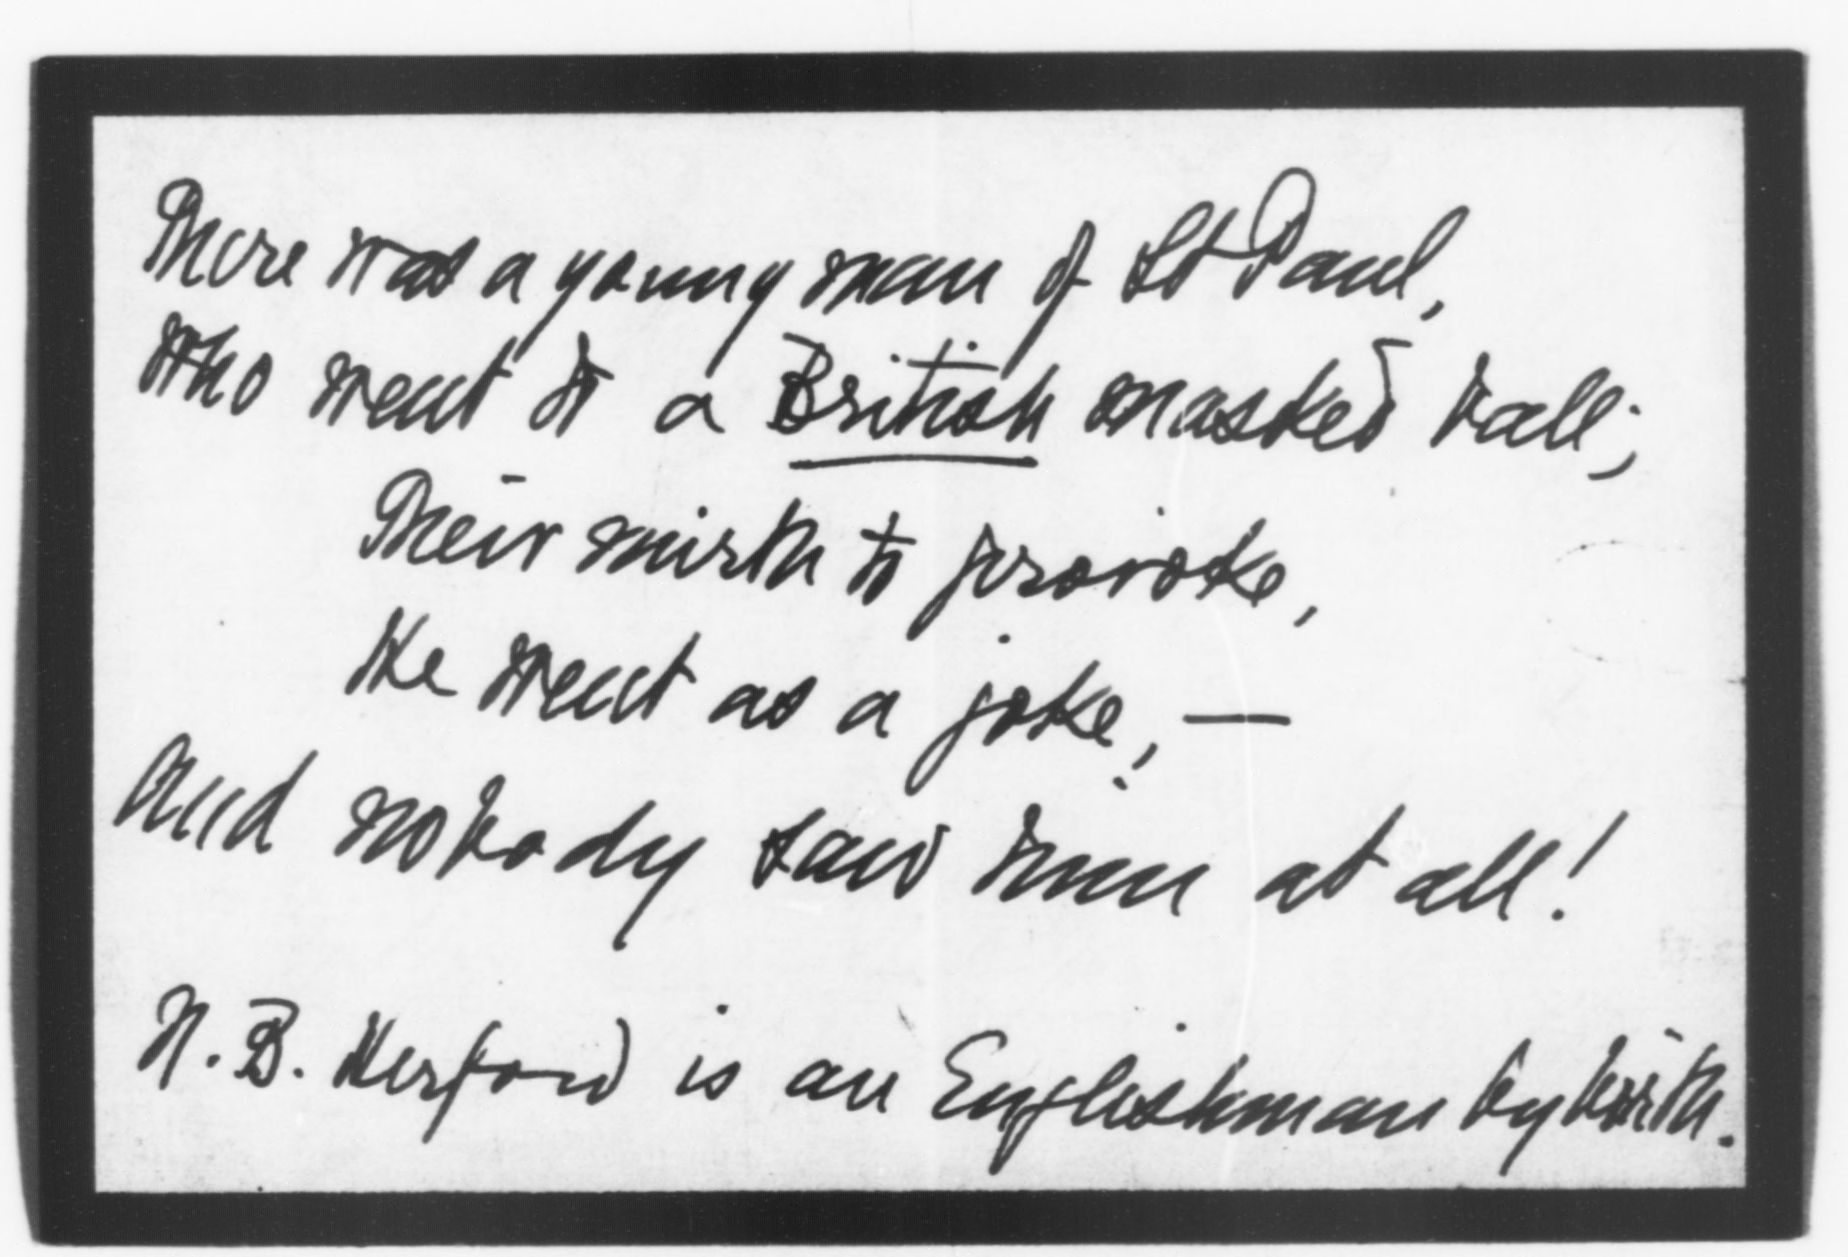 There was a young man of St Paul,
Who went to a British masked ball;
Their mirth to provoke,
He went as a joke, —
And nobody saw him at all!
N.B. Herford is an Englishman by birth.